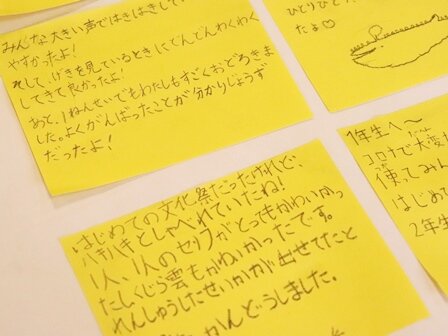 みんな大きい声ではきはきしてい
やすかったよ!
そして、げきを見ているときにどんどんわくわく
してきて良かったよ!
あと、1ねんせいでもわたしもすごくおどろきま
した。よくがんばったことが分かりじょうず
だったよ!
ひとりひと
たよ♡
はじめての文化祭だったけれど、
ハキハキとしゃべれていたね!
1人、1人のセリフがとってもかわいかっ
たしくじら雲もかわいかったです。
れんしゅうしたせいかが出せてたと
かんどうしました。
1年生へ〜
コロナで大変
使てみ
はじめ
2年生